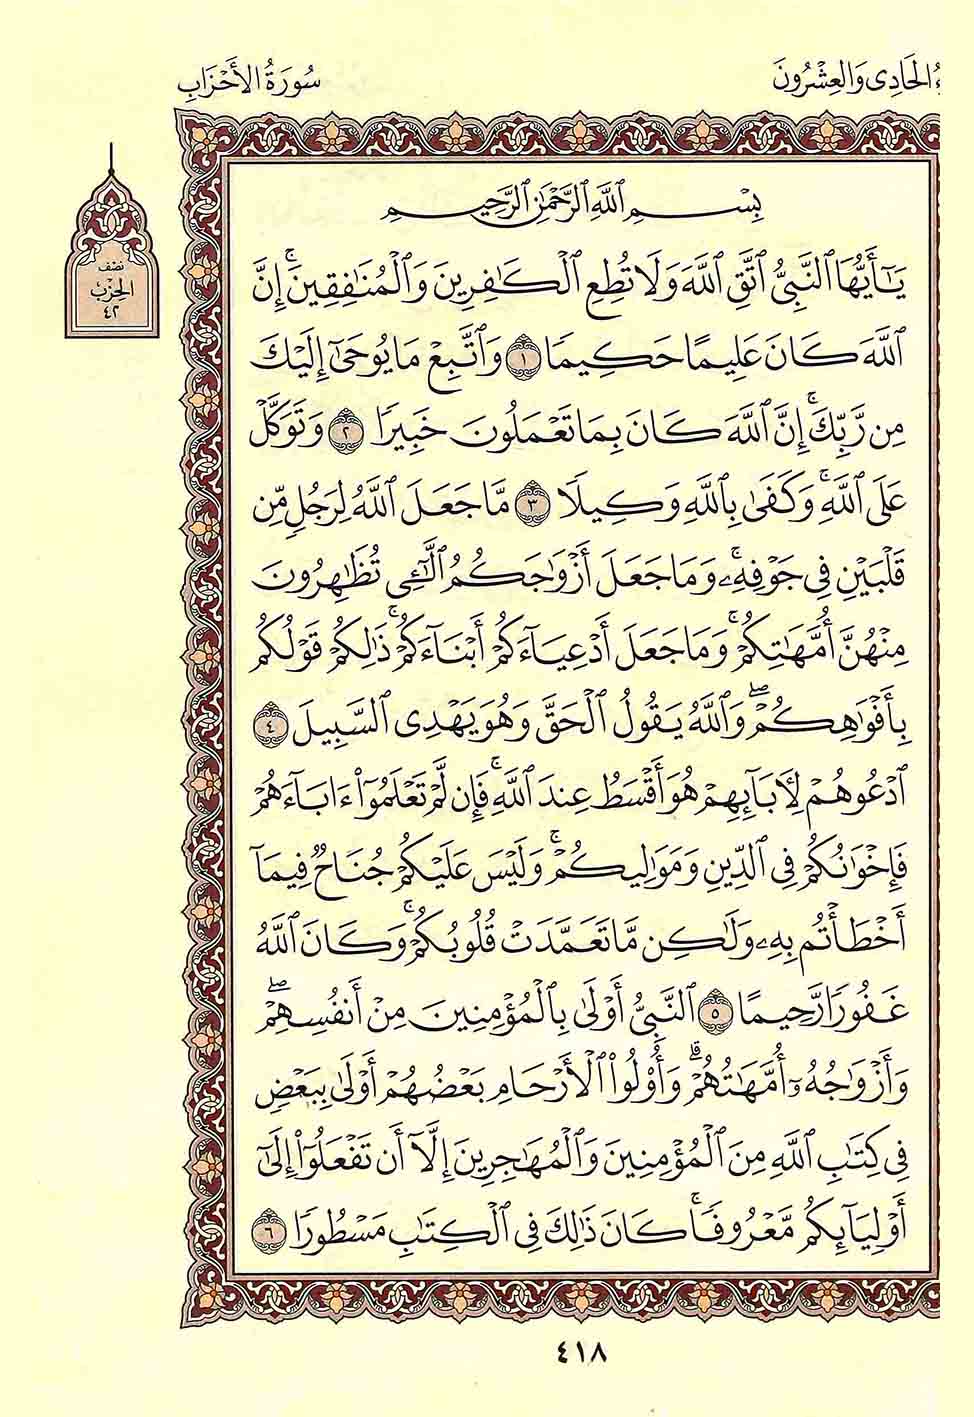 ءُ الْحَادِى وَالْعِشْرُونَ
سُورَةُ الأَحْزَابِ
نِصْف
الحِزْبُ
٤٢
بِسْمِ ٱللَّهِ ٱلرَّحْمَٰنِ ٱلرَّحِيمِ
يَٰٓأَيُّهَا ٱلنَّبِىُّ ٱتَّقِ ٱللَّهَ وَلَا تُطِعِ ٱلْكَٰفِرِينَ وَٱلْمُنَٰفِقِينَ ۚ إِنَّ
ٱللَّهَ كَانَ عَلِيمًا حَكِيمًا ١ وَٱتَّبِعْ مَا يُوحَىٰٓ إِلَيْكَ
مِن رَّبِّكَ ۚ إِنَّ ٱللَّهَ كَانَ بِمَا تَعْمَلُونَ خَبِيرًا ٢ وَتَوَكَّلْ
عَلَى ٱللَّهِ ۚ وَكَفَىٰ بِٱللَّهِ وَكِيلًا ٣ مَّا جَعَلَ ٱللَّهُ لِرَجُلٍ مِّن
قَلْبَيْنِ فِى جَوْفِهِۦ ۚ وَمَا جَعَلَ أَزْوَٰجَكُمُ ٱلَّٰٓـِٔى تُظَٰهِرُونَ
مِنْهُنَّ أُمَّهَٰتِكُمْ ۚ وَمَا جَعَلَ أَدْعِيَآءَكُمْ أَبْنَآءَكُمْ ۚ ذَٰلِكُمْ قَوْلُكُم
بِأَفْوَٰهِكُمْ ۖ وَٱللَّهُ يَقُولُ ٱلْحَقَّ وَهُوَ يَهْدِى ٱلسَّبِيلَ ٤
ٱدْعُوهُمْ لِـَٔابَآئِهِمْ هُوَ أَقْسَطُ عِندَ ٱللَّهِ ۚ فَإِن لَّمْ تَعْلَمُوٓا۟ ءَابَآءَهُمْ
فَإِخْوَٰنُكُمْ فِى ٱلدِّينِ وَمَوَٰلِيكُمْ ۚ وَلَيْسَ عَلَيْكُمْ جُنَاحٌ فِيمَآ
أَخْطَأْتُم بِهِۦ وَلَٰكِن مَّا تَعَمَّدَتْ قُلُوبُكُمْ ۚ وَكَانَ ٱللَّهُ
غَفُورًا رَّحِيمًا ٥ ٱلنَّبِىُّ أَوْلَىٰ بِٱلْمُؤْمِنِينَ مِنْ أَنفُسِهِمْ ۖ
وَأَزْوَٰجُهُۥٓ أُمَّهَٰتُهُمْ ۗ وَأُو۟لُوا۟ ٱلْأَرْحَامِ بَعْضُهُمْ أَوْلَىٰ بِبَعْضٍ
فِى كِتَٰبِ ٱللَّهِ مِنَ ٱلْمُؤْمِنِينَ وَٱلْمُهَٰجِرِينَ إِلَّآ أَن تَفْعَلُوٓا۟ إِلَىٰٓ
أَوْلِيَآئِكُم مَّعْرُوفًا ۚ كَانَ ذَٰلِكَ فِى ٱلْكِتَٰبِ مَسْطُورًا ٦
٤١٨